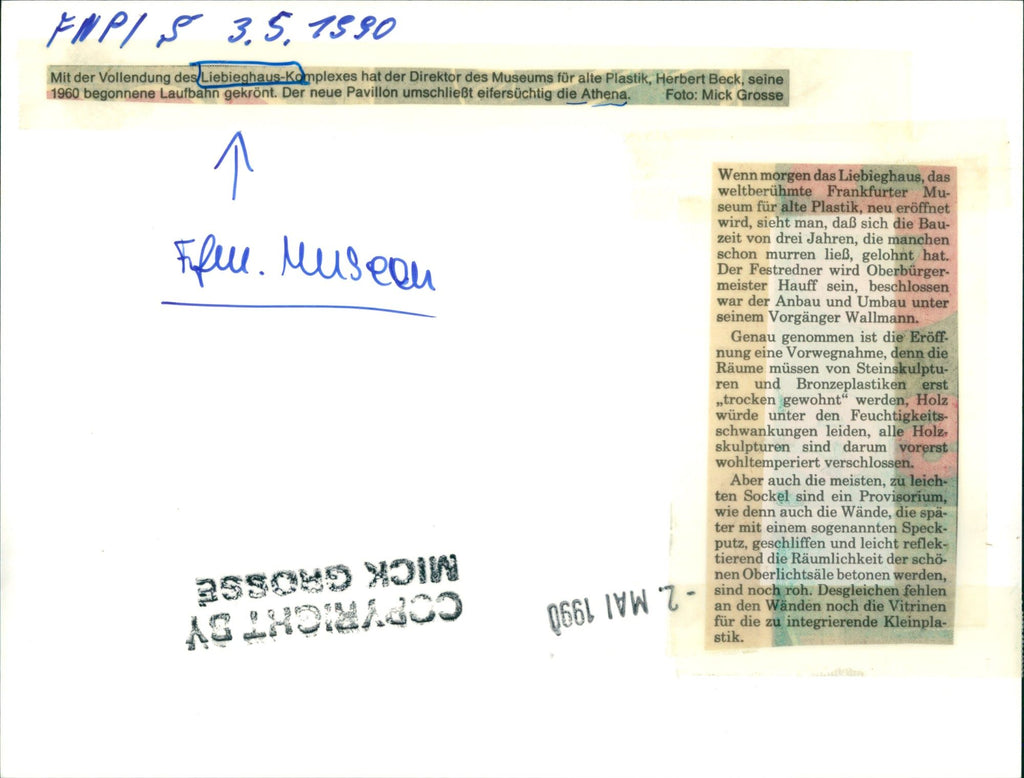 FNP / S 3.5.1990
Mit der Vollendung des Liebieghaus-Komplexes hat der Direktor des Museums für alte Plastik, Herbert Beck, seine
1960 begonnene Laufbahn gekrönt. Der neue Pavillon umschließt eifersüchtig die Athena. Foto: Mick Grosse
Ffm. Museen
Wenn morgen das Liebieghaus, das
weltberühmte Frankfurter Mu-
seum für alte Plastik, neu eröffnet
wird, sieht man, daß sich die Bau-
zeit von drei Jahren, die manchen
schon murren ließ, gelohnt hat.
Der Festredner wird Oberbürger-
meister Hauff sein, beschlossen
war der Anbau und Umbau unter
seinem Vorgänger Wallmann.
Genau genommen ist die Eröff-
nung eine Vorwegnahme, denn die
Räume müssen von Steinskulptu-
ren und Bronzeplastiken erst
„trocken gewohnt“ werden, Holz
würde unter den Feuchtigkeits-
schwankungen leiden, alle Holz-
skulpturen sind darum vorerst
wohltemperiert verschlossen.
Aber auch die meisten, zu leich-
ten Sockel sind ein Provisorium,
wie denn auch die Wände, die spä-
ter mit einem sogenannten Speck-
putz, geschliffen und leicht reflek-
tierend die Räumlichkeit der schö-
nen Oberlichtsäle betonen werden,
sind noch roh. Desgleichen fehlen
an den Wänden noch die Vitrinen
für die zu integrierende Kleinpla-
stik.
COPYRIGHT BY
MICK GROSSE
- 2. MAI 1990